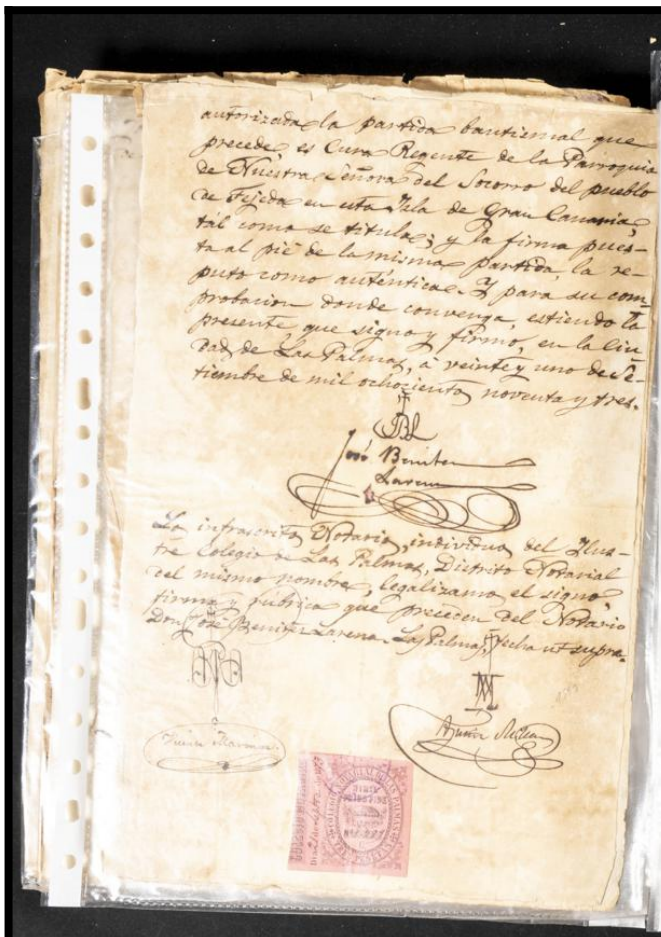 autorizada la partida bautismal que
precede, es Cura Regente de la Parroquia
de Nuestra Señora del Socorro del pueblo
de Tejeda en esta Isla de Gran Canaria,
tál como se titula; y la firma pues-
ta al pié de la misma partida, la re-
puto como auténtica. Y para su com
probacion donde convenga, estiendo la
presente, que signo y firmo, en la Ciu
dad de Las Palmas, á veinte y uno de Se-
tiembre de mil ochocientos noventa y tres.
José Benitez
Larena
Los infrascritos Notarios, individuos del Ilus-
tre Colegio de Las Palmas, Distrito Notarial
del mismo nombre, legalizamos el signo,
firma y rúbrica que preceden del Notario
Don José Benitez Larena. Las Palmas, fecha ut supra.